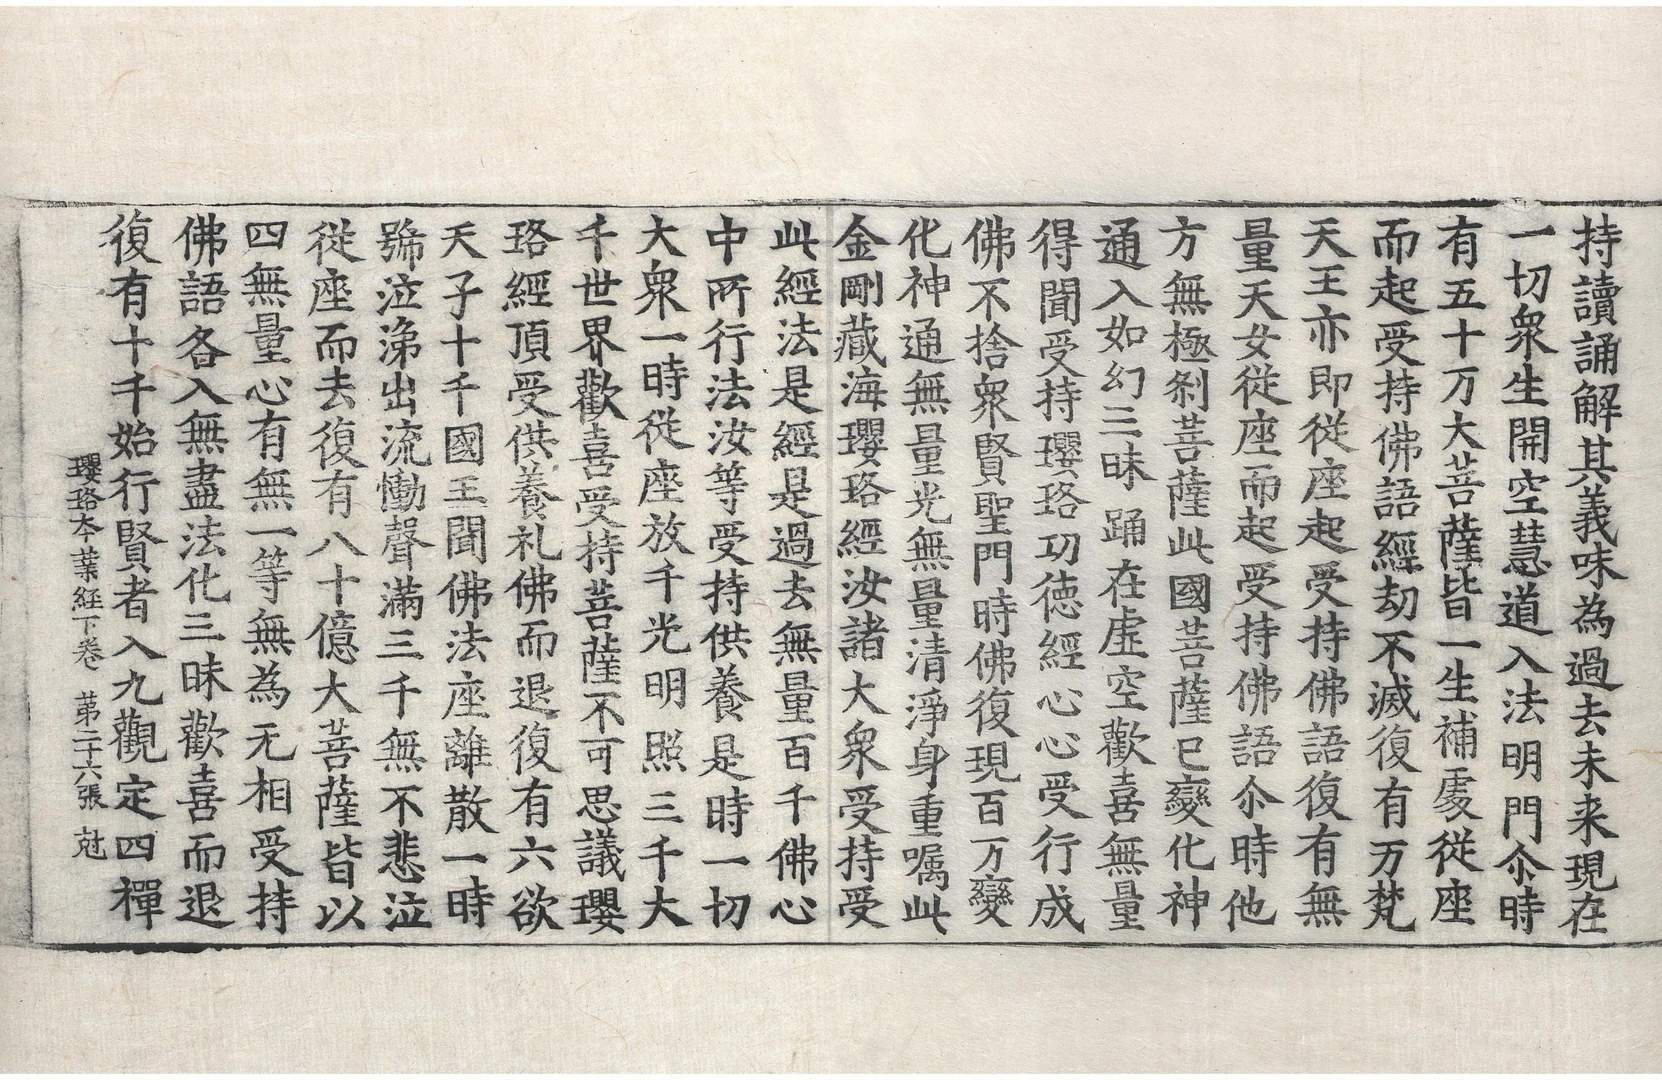 持讀誦解其義味為過去未来現在
一切衆生開空慧道入法明門尒時
有五十万大菩薩皆一生補處從座
而起受持佛語經劫不滅復有万梵
天王亦即從座起受持佛語復有無
量天女從座而起受持佛語尒時他
方無極剎菩薩此國菩薩已變化神
通入如幻三昧踊在虛空歡喜無量
得聞受持瓔珞功徳經心心受行成
佛不捨衆賢聖門時佛復現百万變
化神通無量光無量清淨身重嘱此
金剛藏海瓔珞經汝諸大衆受持受
此經法是經是過去無量百千佛心
中所行法汝等受持供養是時一切
大衆一時從座放千光明照三千大
千世界歡喜受持菩薩不可思議瓔
珞經頂受供養礼佛而退復有六欲
天子十千國王聞佛法座離散一時
號泣涕出流慟聲滿三千無不悲泣
從座而去復有八十億大菩薩皆以
四無量心有無一等無為无相受持
佛語各入無盡法化三昧歡喜而退
復有十千始行賢者入九觀定四禪
瓔珞本業経下卷 苐二十六張 尅